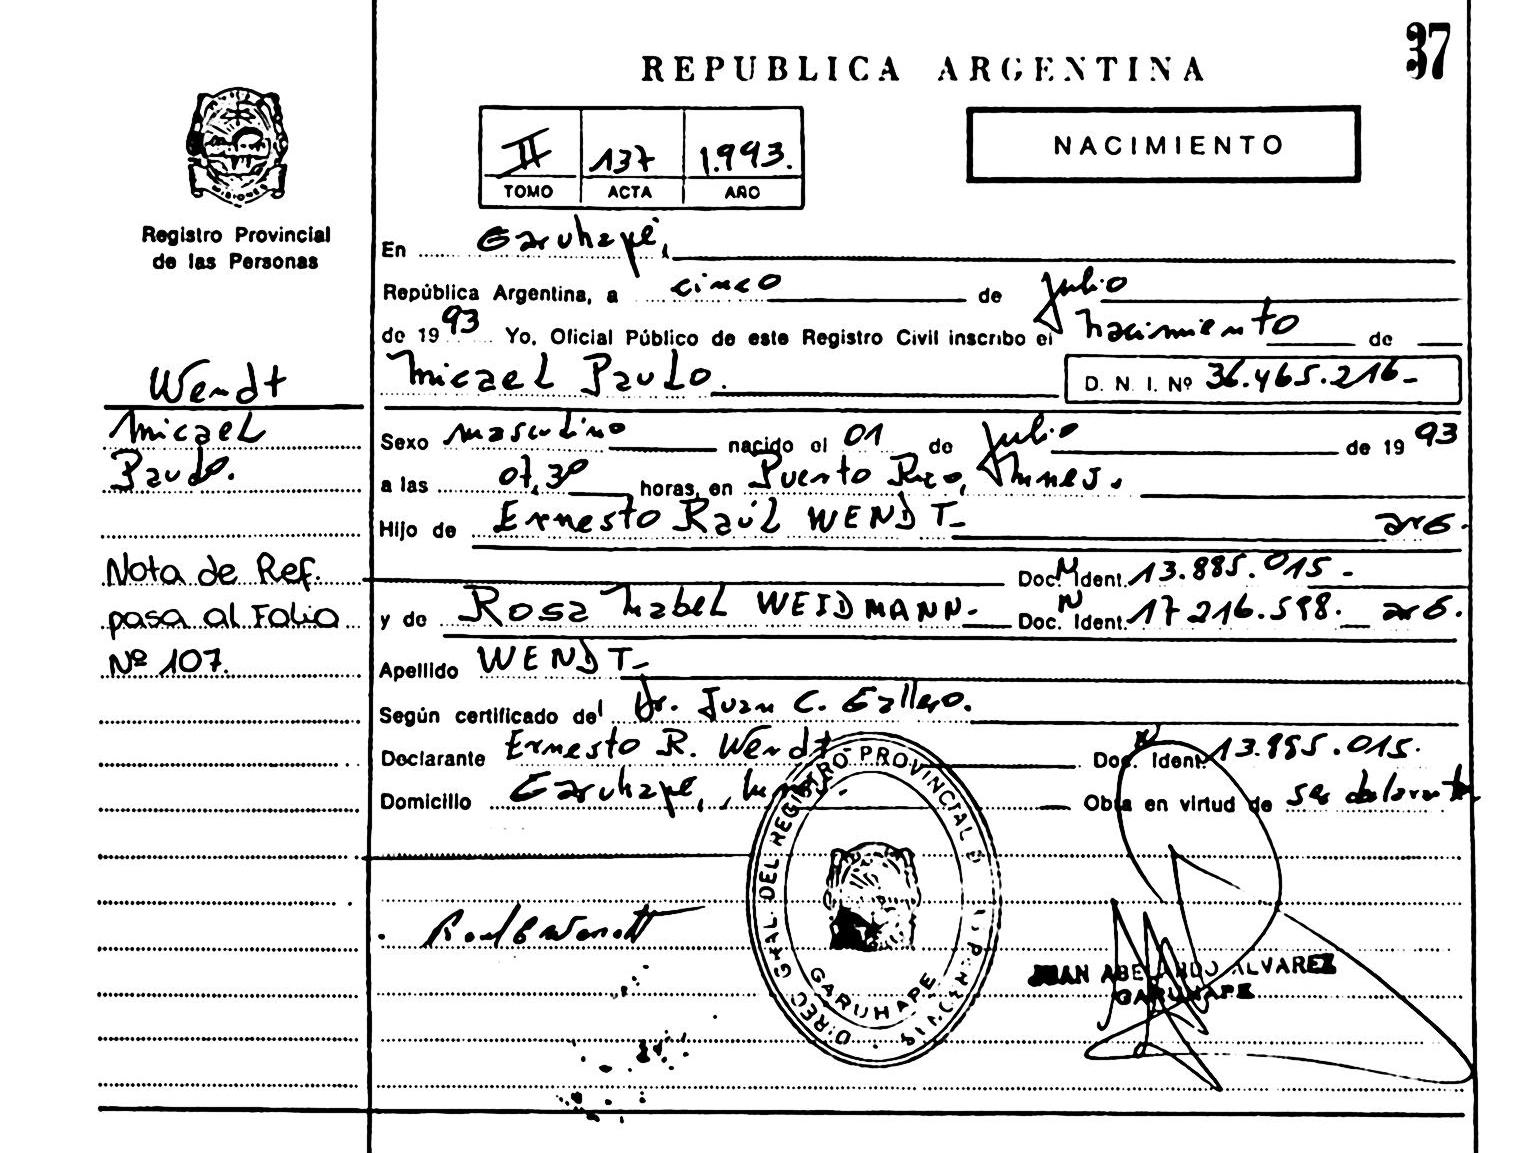 37
REPUBLICA ARGENTINA
NACIMIENTO
II 137 1.993.
TOMO ACTA AÑO
MISIONES
Registro Provincial
de las Personas
Wendt
Micael
Paulo.
Nota de Ref.
pasa al Folio
Nº 107.
En Garuhapé,
República Argentina, a cinco de Julio
de 1993 Yo, Oficial Público de este Registro Civil inscribo el nacimiento de
Micael Paulo. D. N. I. Nº 36.465.216-
Sexo masculino nacido el 01 de Julio de 1993
a las 07,30 horas, en Puerto Rico, Mnes.
Hijo de Ernesto Raúl WENDT- arg.
Doc. N Ident. 13.885.015-
y de Rosa Mabel WEIDMANN- Doc. N Ident. 17 216.598. arg.
Apellido WENDT-
Según certificado del Dr. Juan C. Gallero.
Declarante Ernesto R. Wendt Doc. Ident. 13.885.015.
Domicilio Garuhapé, Mnes. Obra en virtud de ser declarante
DIREC. GRAL. DEL REGISTRO PROVINCIAL D LAS PERSONAS
GARUHAPE
JUAN ABELARDO ALVAREZ
GARUHAPE